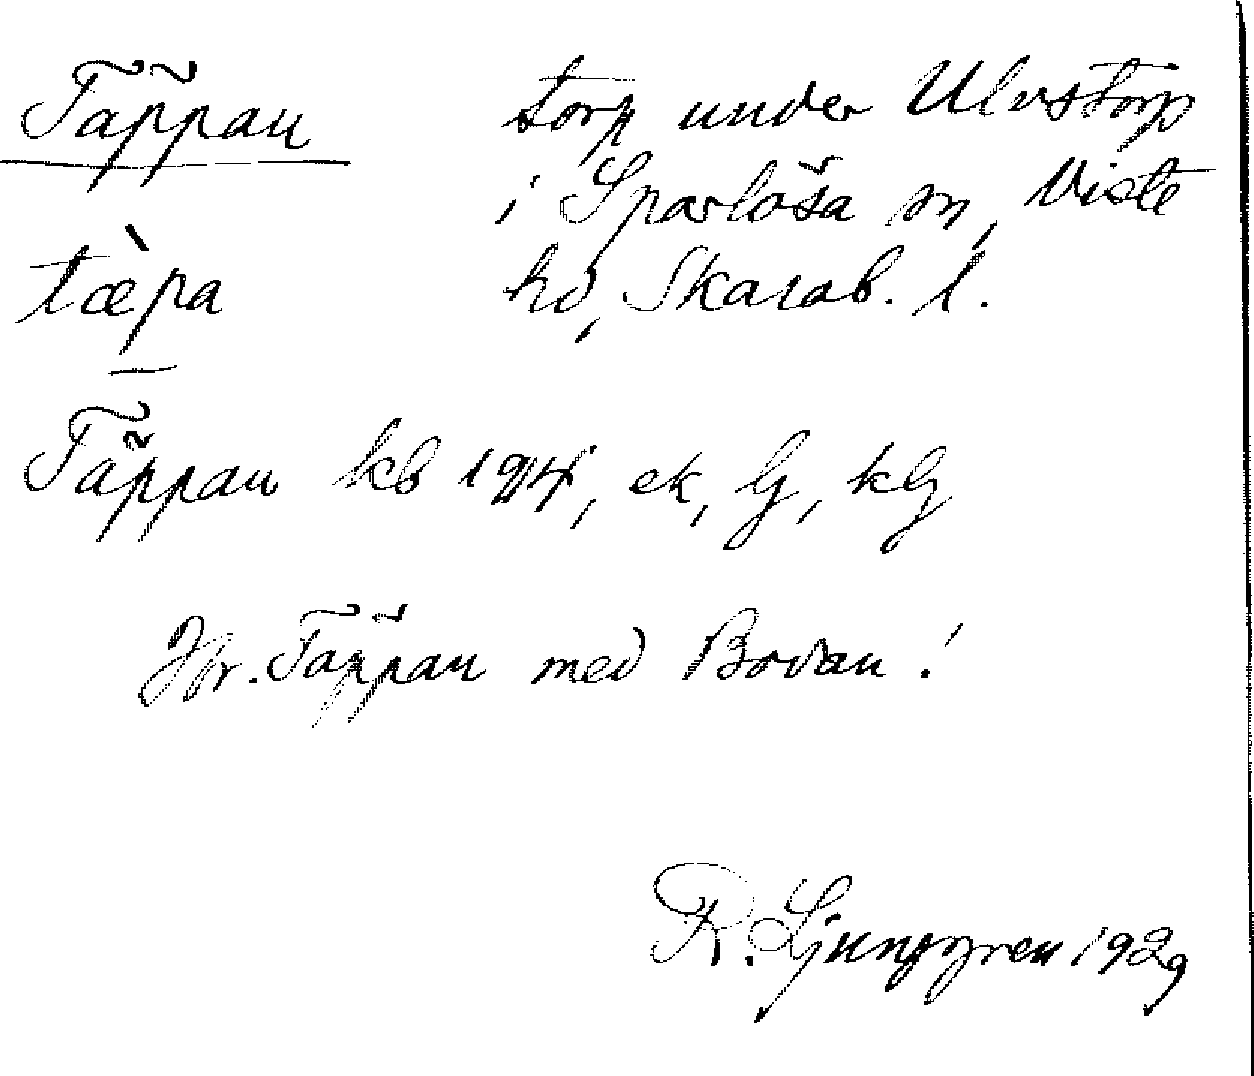 Täppan torp under Ulvstorp
i Sparlösa sn, Viste
tæ̀pa hd, Skarab. l.
Täppan kb 1924, ek, G, kG
Jfr. Täppan med Bovan!
R. Ljunggren 1929